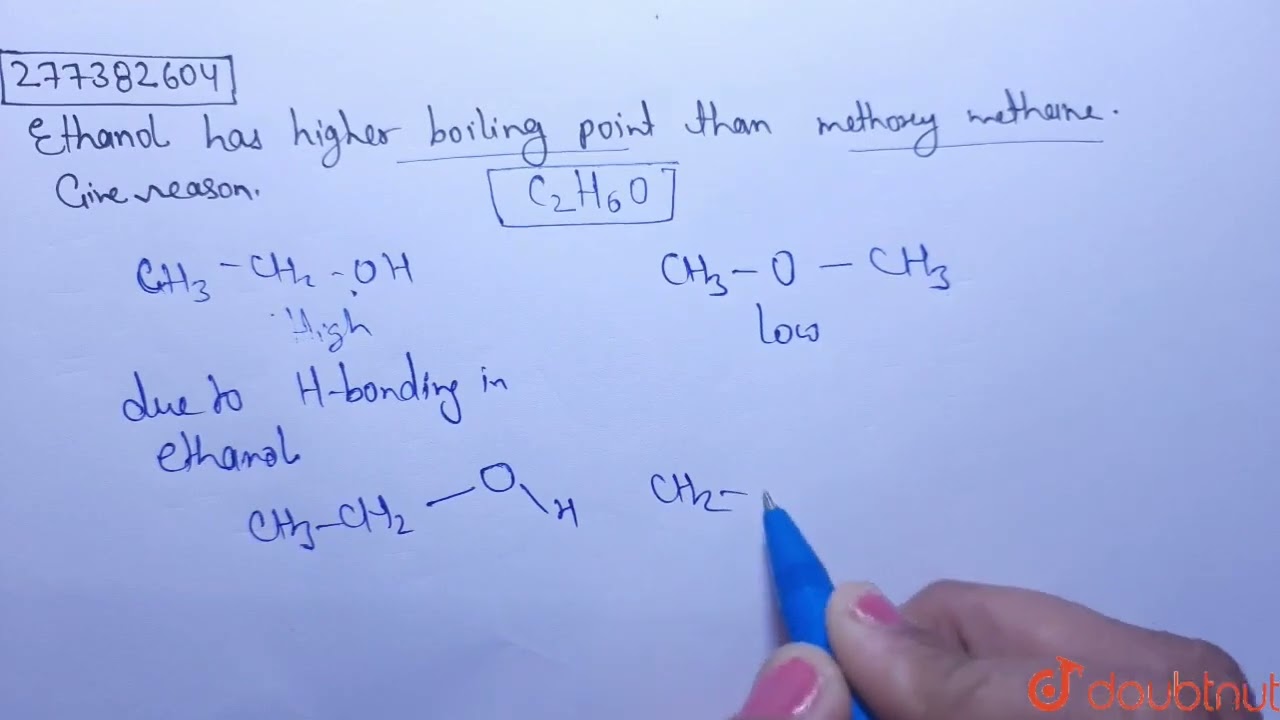 277382604
Ethanol has higher boiling point than methoxy methane.
Give reason.
C2H6O
CH3-CH2-OH
CH3-O-CH3
High
low
due to H-bonding in
ethanol
CH3-CH2-O-H
CH2-
doubtnut